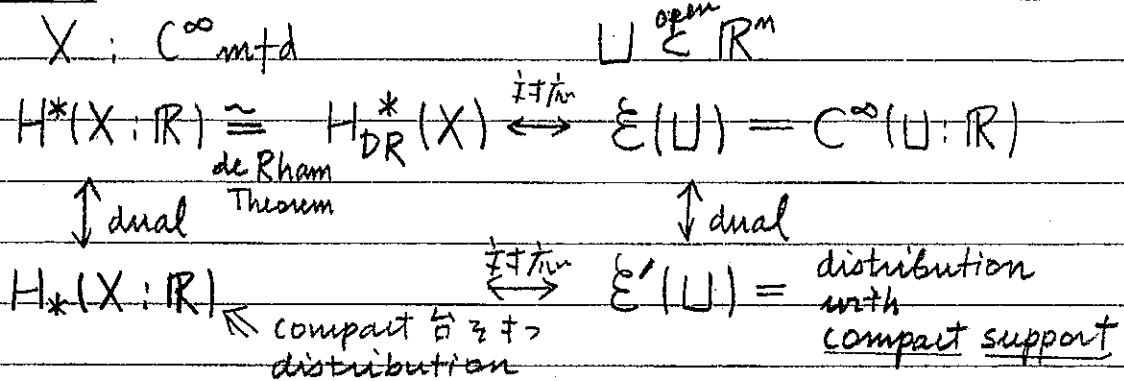 X : C^∞ mfd U ⊂open ℝ^n
H*(X : ℝ) ≅ H*_DR(X) ⟷対応 ℰ(U) = C^∞(U : ℝ)
de Rham
Theorem
↕ dual ↕ dual
H_*(X : ℝ) ⟷対応 ℰ'(U) = distribution
with
compact support
↖ compact 台をもつ
distribution